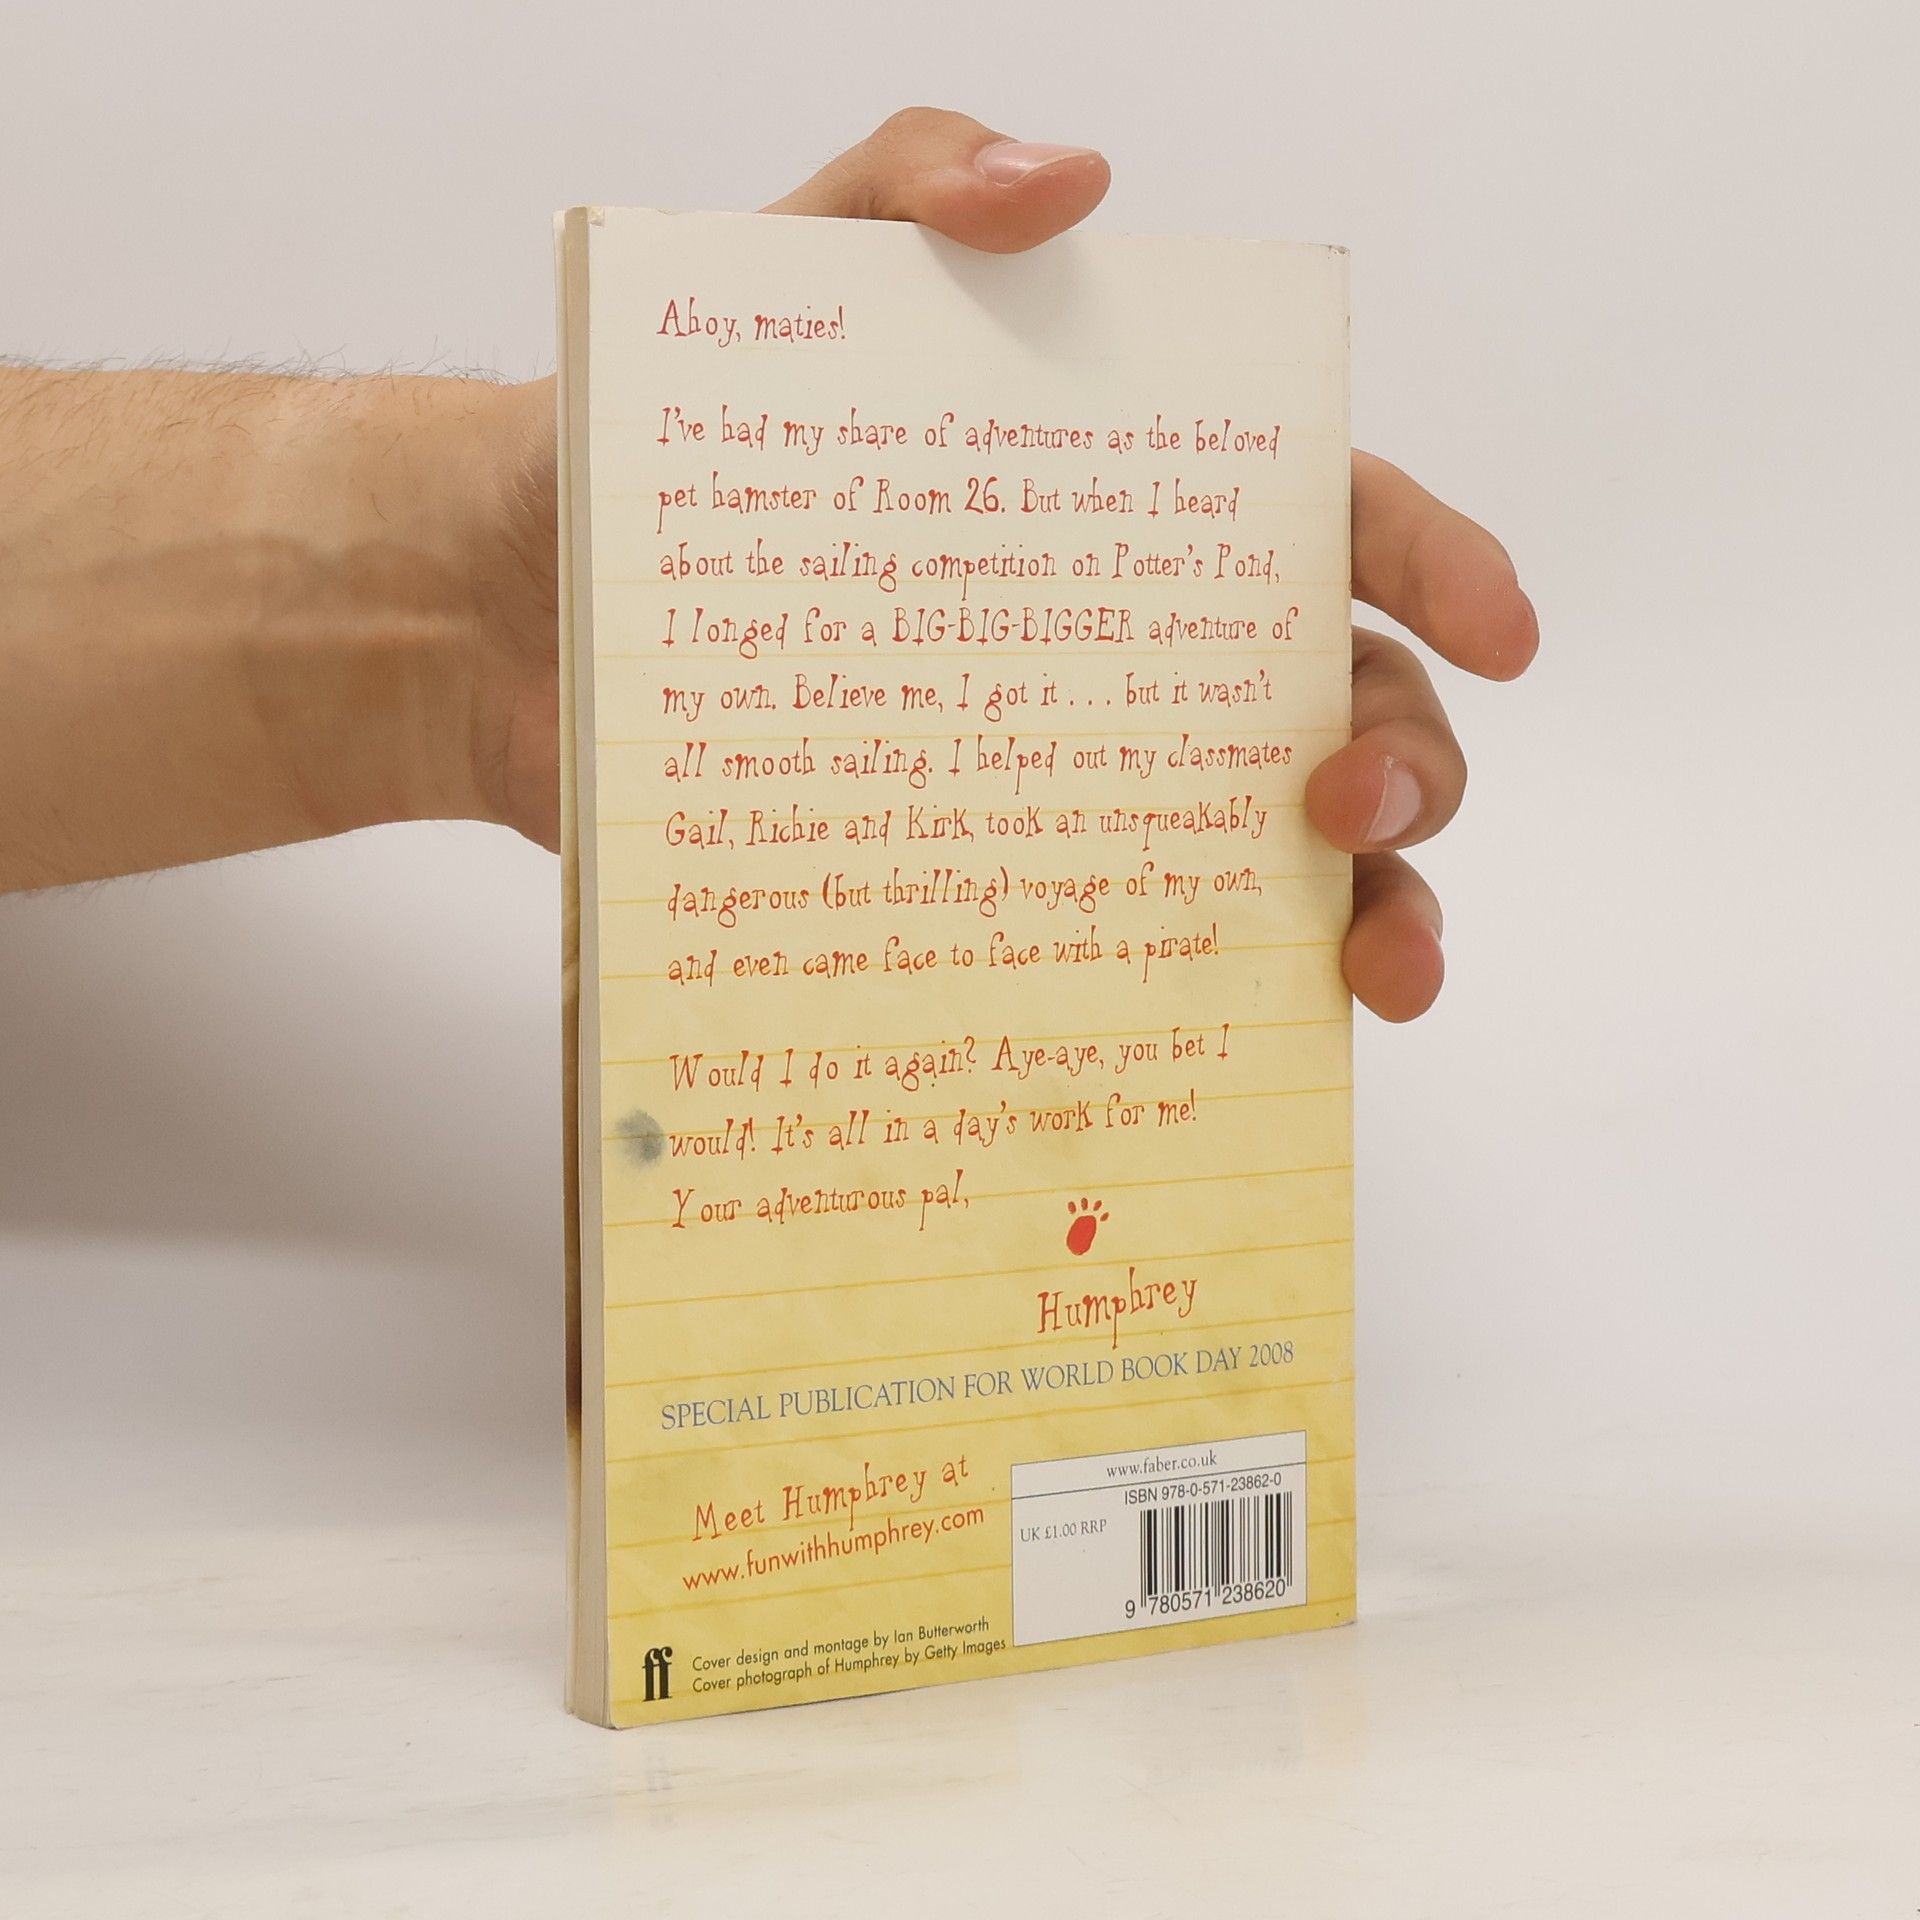 Ahoy, maties!
I've had my share of adventures as the beloved
pet hamster of Room 26. But when I heard
about the sailing competition on Potter's Pond,
I longed for a BIG-BIG-BIGGER adventure of
my own. Believe me, I got it . . . but it wasn't
all smooth sailing. I helped out my classmates
Gail, Richie and Kirk, took an unsqueakably
dangerous (but thrilling) voyage of my own,
and even came face to face with a pirate!
Would I do it again? Aye-aye, you bet I
would! It's all in a day's work for me!
Your adventurous pal,
Humphrey
SPECIAL PUBLICATION FOR WORLD BOOK DAY 2008
Meet Humphrey at
www.funwithhumphrey.com
www.faber.co.uk
ISBN 978-0-571-23862-0
UK £1.00 RRP
9 780571 238620
ff
Cover design and montage by Ian Butterworth
Cover photograph of Humphrey by Getty Images